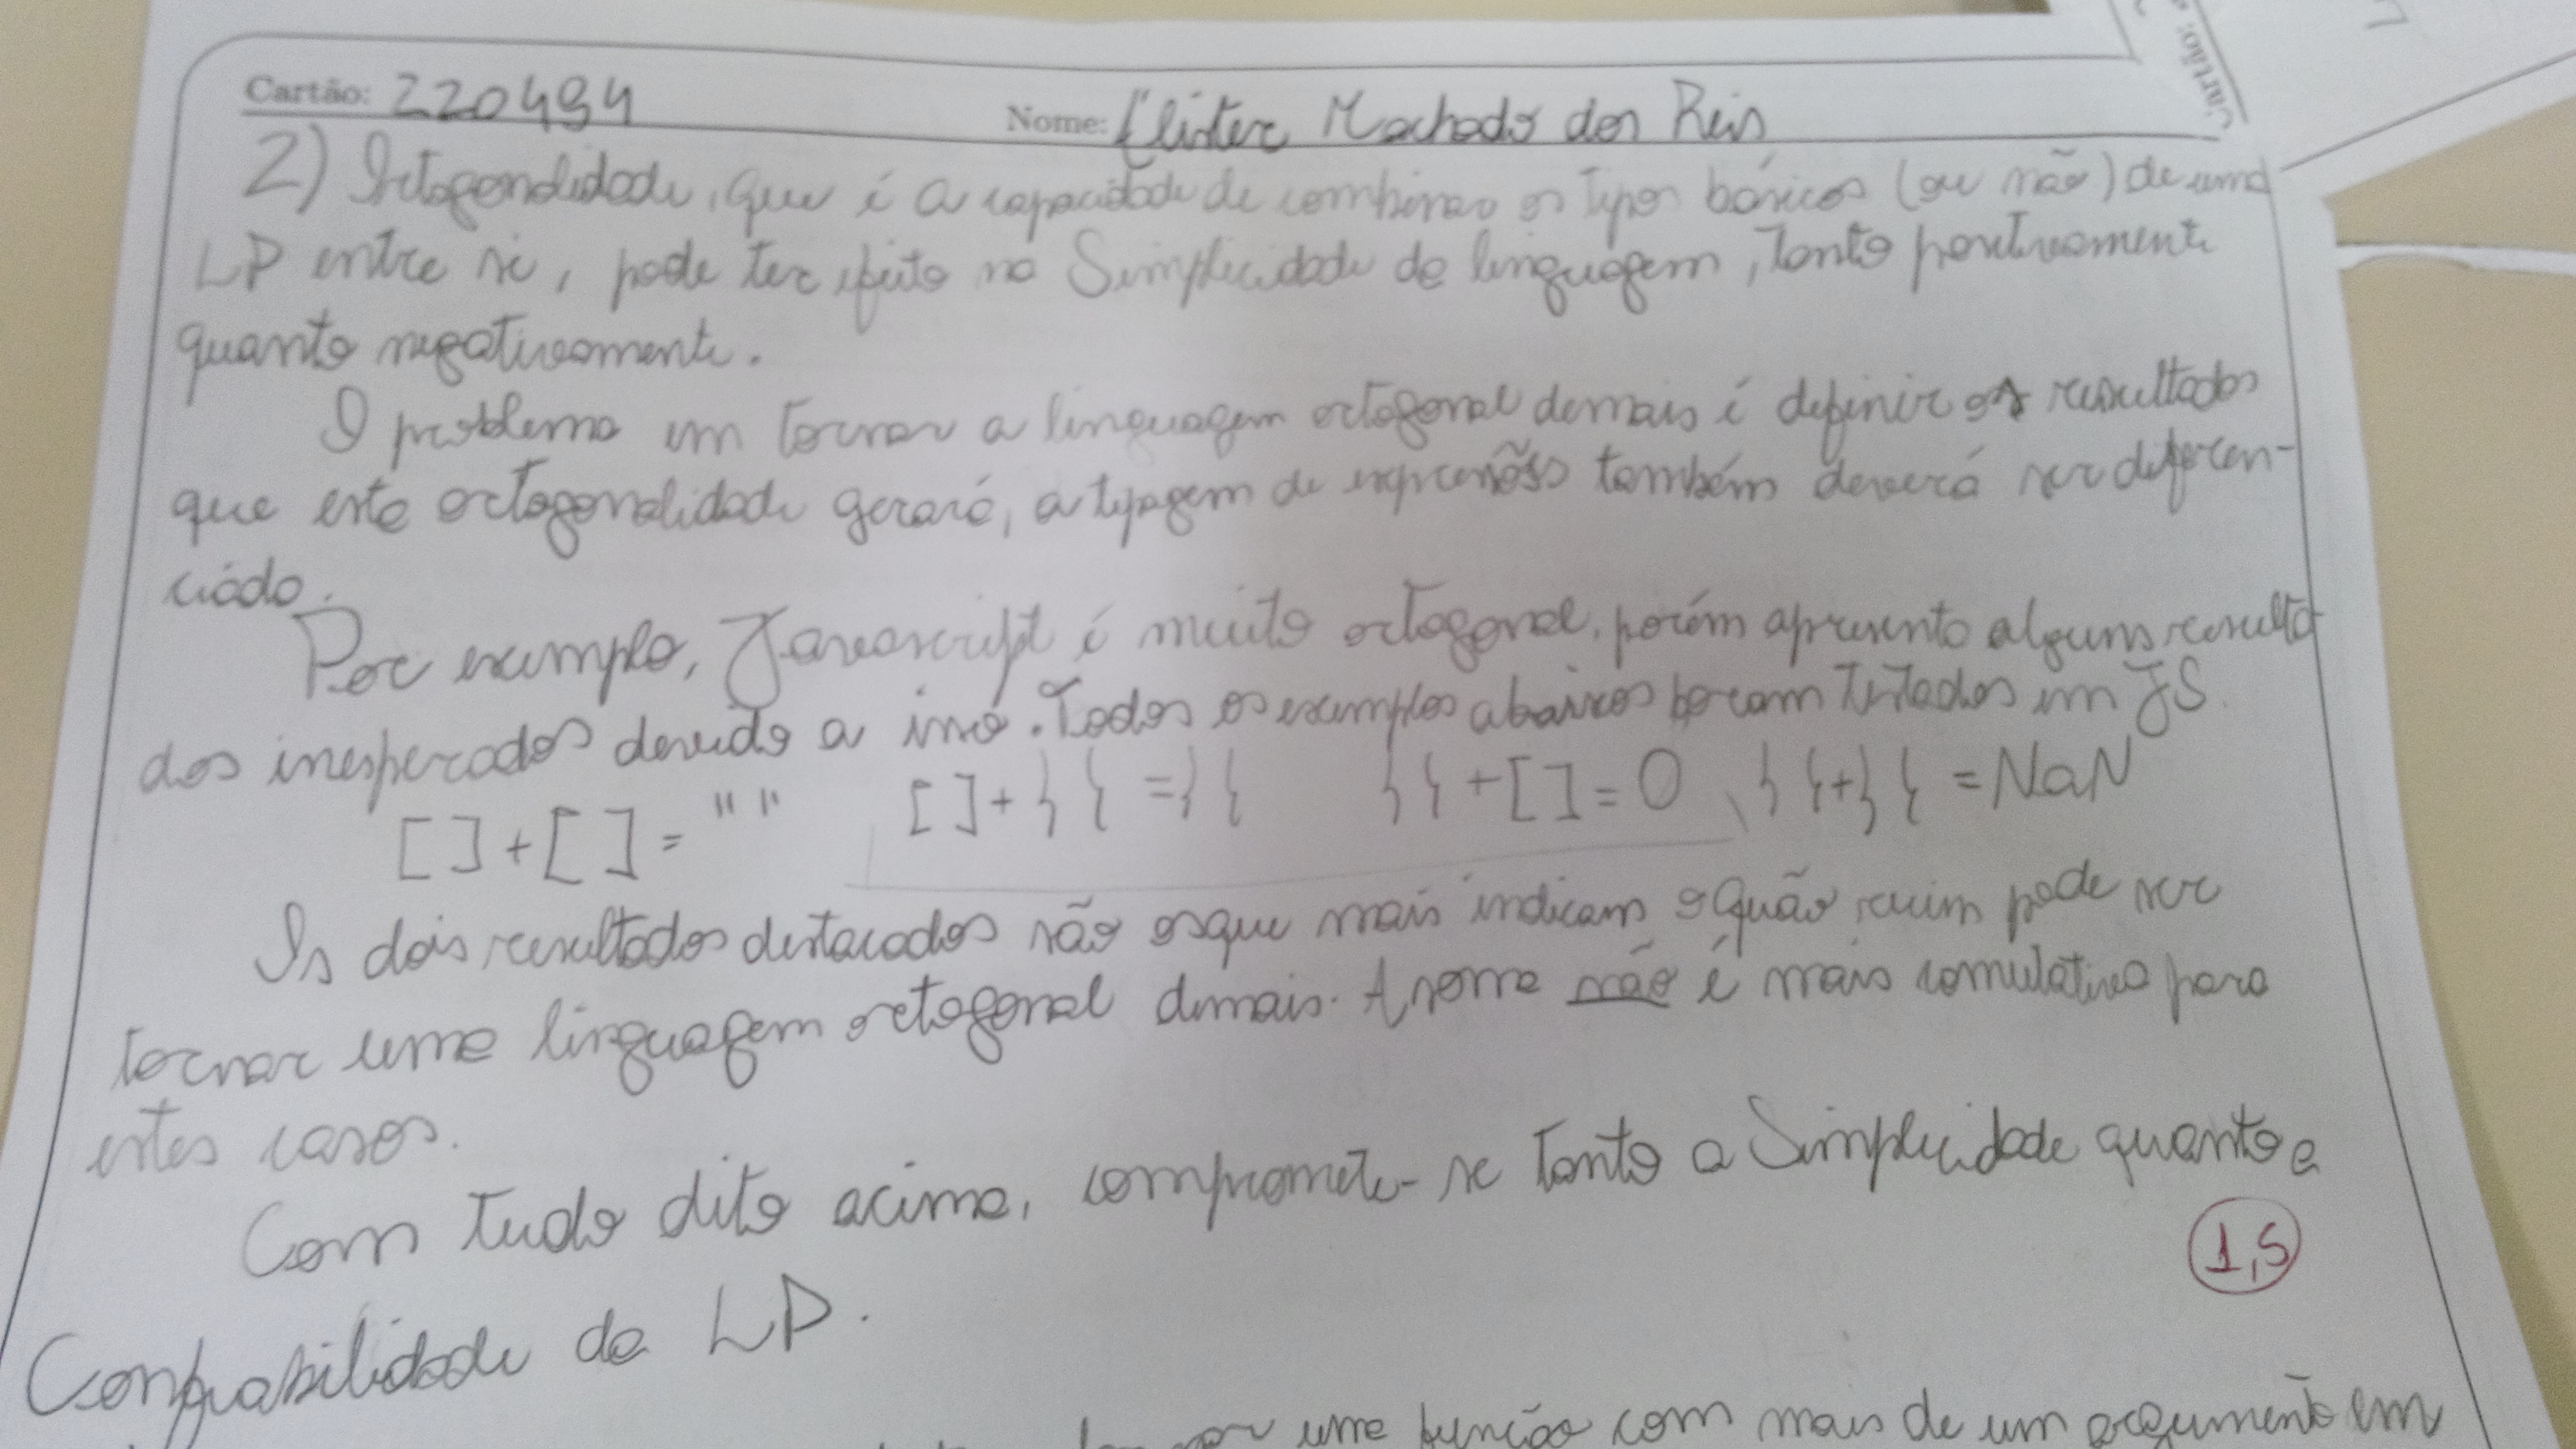 Cartão: 220494
Nome: Clister Machado dos Reis
2) Octogonalidade, que é a capacidade de combinar os tipos básicos (ou não) de uma
LP entre si, pode ter efeito na Simplicidade da linguagem, tanto positivamente
quanto negativamente.
O problema em tornar a linguagem octogonal demais é definir os resultados
que esta octogonalidade gerará, a tipagem de expressões também deverá ser diferen-
ciada.
Por exemplo, Javascript é muito octogonal, porém apresenta alguns resulta
dos inesperados devido a isso. Todos os exemplos abaixos foram testados em JS.
[]+[]= "" []+}{ =}{ }{+[]=0 }{+}{ =NaN
Os dois resultados destacados são os que mais indicam o quão ruim pode ser
tornar uma linguagem octogonal demais. A soma não é mais comulativa para
estes casos.
Com tudo dito acima, compromete-se tanto a Simplicidade quanto a
1,5
Confiabilidade da LP.
uma função com mais de um argumento em
Cartão: